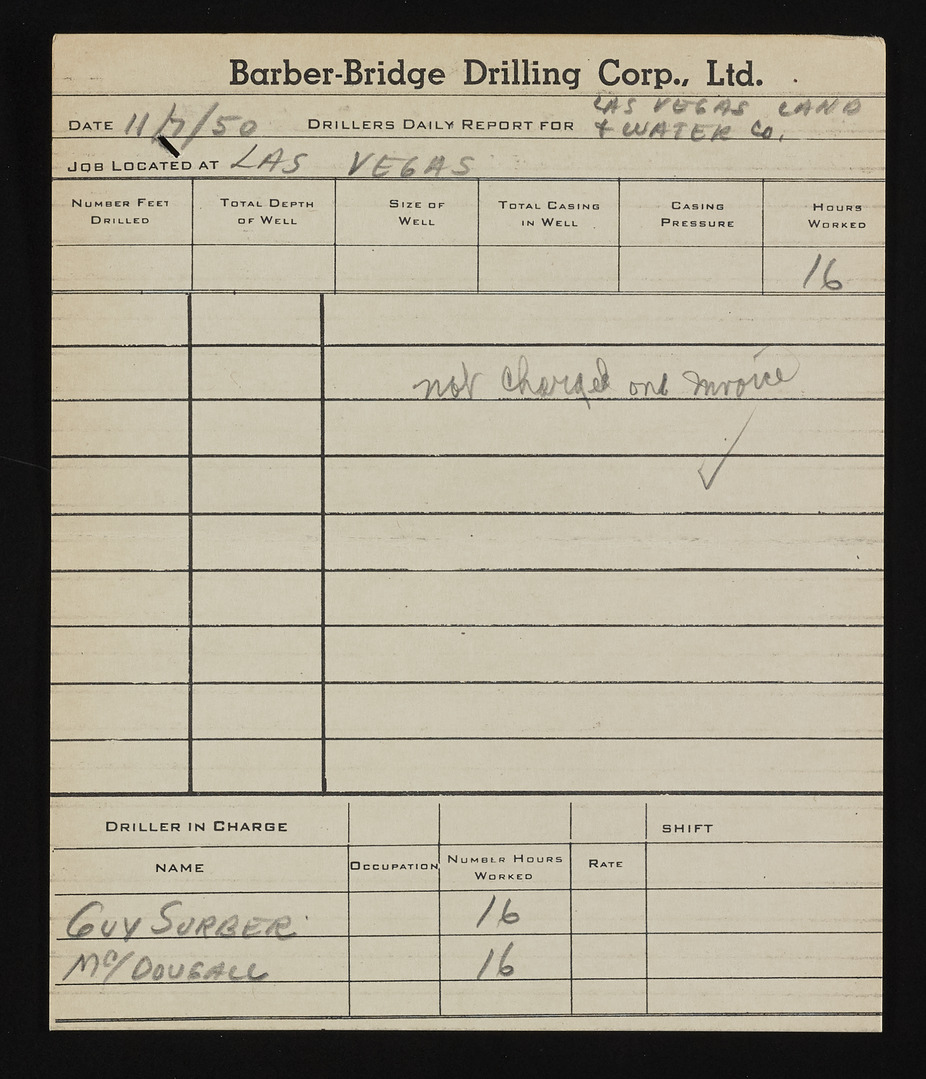 Barber-Bridge Drilling Corp., Ltd.
DATE 11/7/50 DRILLERS DAILY REPORT FOR LAS VEGAS LAND
& WATER Co.
JOB LOCATED AT LAS VEGAS
NUMBER FEET DRILLED TOTAL DEPTH OF WELL SIZE OF WELL TOTAL CASING IN WELL CASING PRESSURE HOURS WORKED
16
not charged on Invoice
✓
DRILLER IN CHARGE SHIFT
NAME OCCUPATION NUMBER HOURS WORKED RATE
GUY SURBER 16
Mc/DOUGALL 16